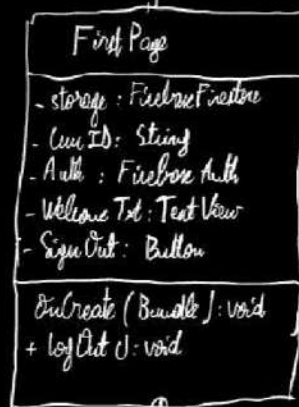 First Page
- storage : FirebaseFirestore
- CurrID: String
- Auth : Firebase Auth
- Welcome Txt : Text View
- Sign Out : Button
OnCreate (Bundle) : void
+ logOut () : void